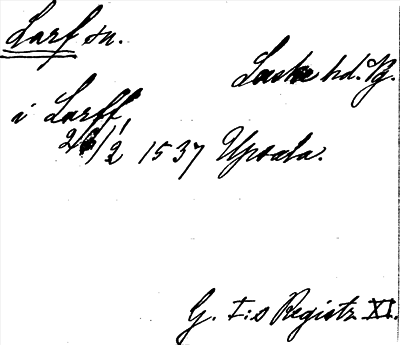 Larf sn.
Laske hd. Vg.
i Larff,
26/2 1537 Upsala.
G. I:s Registr. XI.